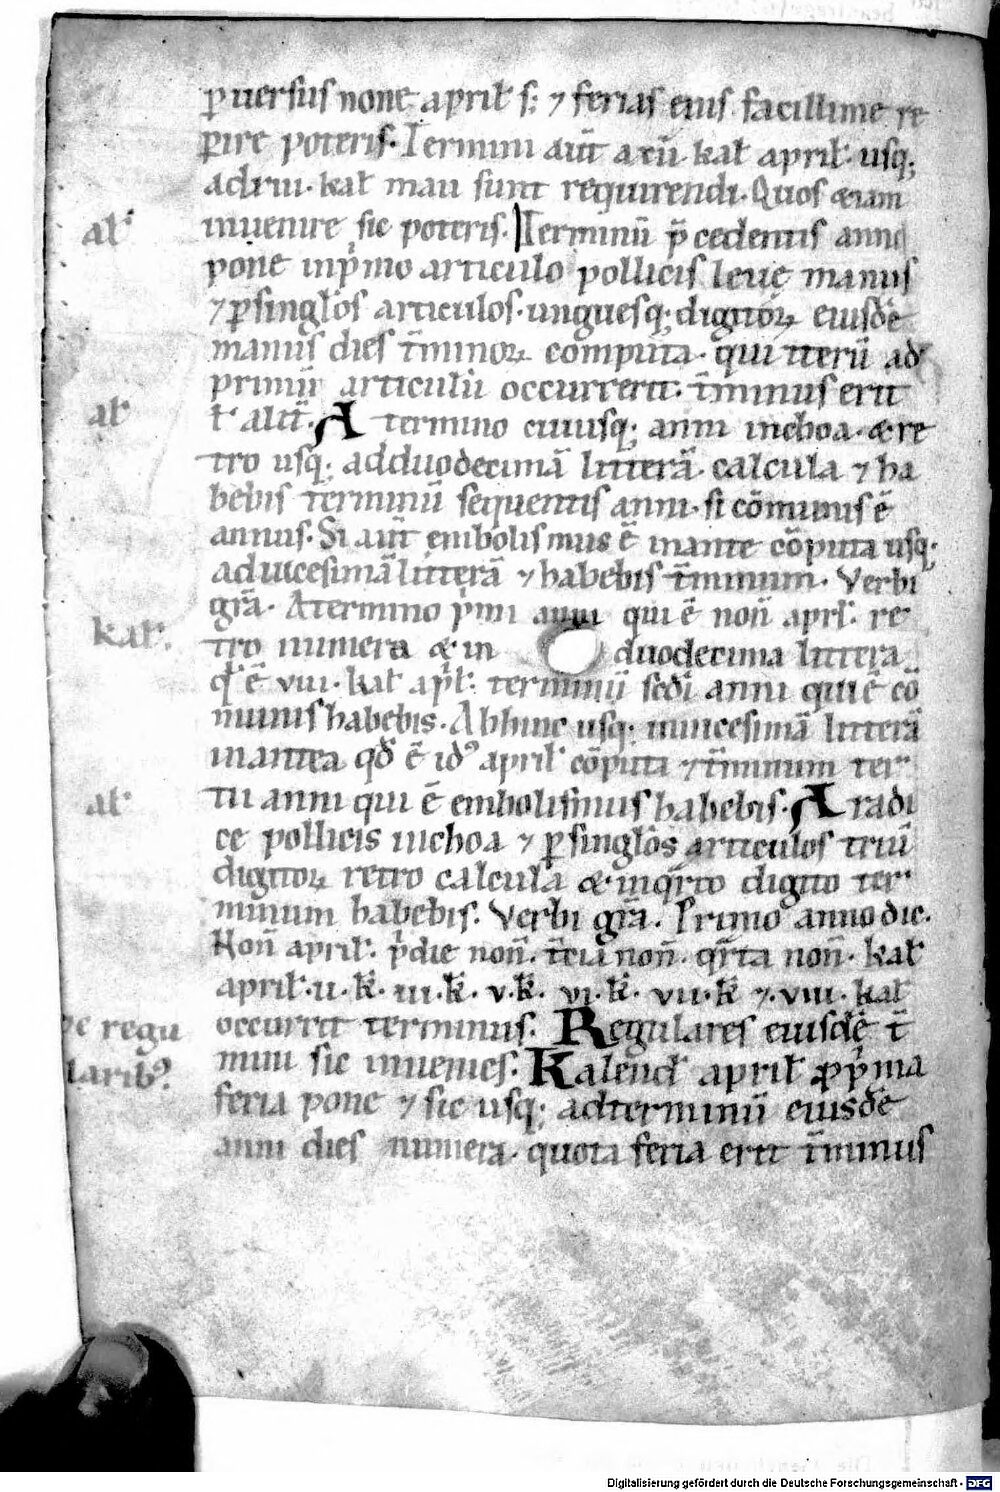 ꝑuersus none aprił s: ⁊ ferias eius facillime re
ꝑire poteris. Termini aut̄ a xii kał aprił. usq;
ad xiiii. kał maii sunt requirendi. Quos etiam
ał inuenire sic poteris. Terminū p̄cedentis anni
pone in p̍mo articulo pollicis leue manus
⁊ ꝑ singlōs articulos. unguesq; digitoꝝ eiusdē
manus dies t̄minoꝝ computa. qui iterū ad
primū articulū occurrerit. t̄minus erit
ał ł alit̄. A termino cuiusq; anni inchoa. & re
tro usq; ad duodecimā litterā calcula ⁊ ha
bebis terminū sequentis anni. si cōmunis ē
annus. Si aut̄ embolismus ē in ante cōputa usq;
ad uicesimā litterā ⁊ habebis t̄minum. Verbi
grā. A termino p̍mi anni qui ē non̄ aprł. re
kał. tro numera & in duodecima littera
qđ ē viii. kał apł. terminū sc̄di anni qui ē cō
munis habebis. Abhinc usq; in uicesimā litterā
in antea qđ ē idꝰ aprił cōputa ⁊ t̄minum ter
ał tii anni qui ē embolismus habebis. A radi
ce pollicis inchoa ⁊ ꝑ singlōs articulos triū
digitoꝝ retro calcula & in q̍rto digito ter
minum habebis. Verbi grā. Primo anno dic.
Non̄ aprił. p̍die non̄. t̄cia non̄. q̍rta non̄. kał
aprił. ii. k̄. iii. k̄. v. k̄. vi. k̄. vii. k̄ ⁊ viii. kał
De regu occurrit terminus. Regulares eiusdē t̄
laribꝰ. mini sic inuenies. Kalend̄ aprił ꝓ p̍ma
feria pone ⁊ sic usq; ad terminū eiusdē
anni dies numera. quota feria erit t̄minus
Digitalisierung gefördert durch die Deutsche Forschungsgemeinschaft - DFG